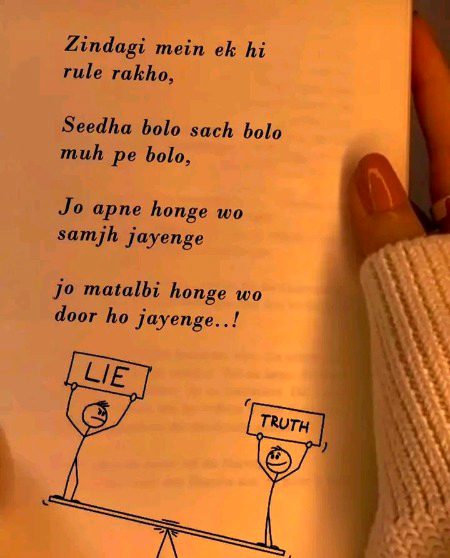 Zindagi mein ek hi
rule rakho,
Seedha bolo sach bolo
muh pe bolo,
Jo apne honge wo
samjh jayenge
jo matalbi honge wo
door ho jayenge..!
LIE
TRUTH